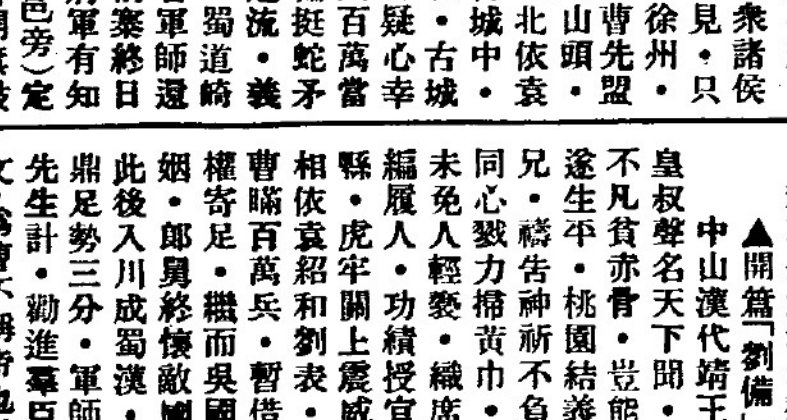 衆諸侯
見・只
徐州・
曹先盟
山頭・
北依袁
城中・
・古城
疑心幸
百萬當
挺蛇矛
流・義
蜀道崎
軍師還
寨終日
軍有知
邑旁）定
▲開篇「劉備
中山漢代靖王
皇叔聲名天下聞・
不凡貧赤骨・豈能
遂生平・桃園結義
兄・禱告神祈不負
同心戮力掃黃巾・
未免人輕褻・織席
編履人・功績授官
縣・虎牢關上震威
相依袁紹和劉表・
曹瞞百萬兵・暫借
權寄足・繼而吳國
姻・郎舅終懷敵國
此後入川成蜀漢・
鼎足勢三分・軍師
先生計・勸進羣臣